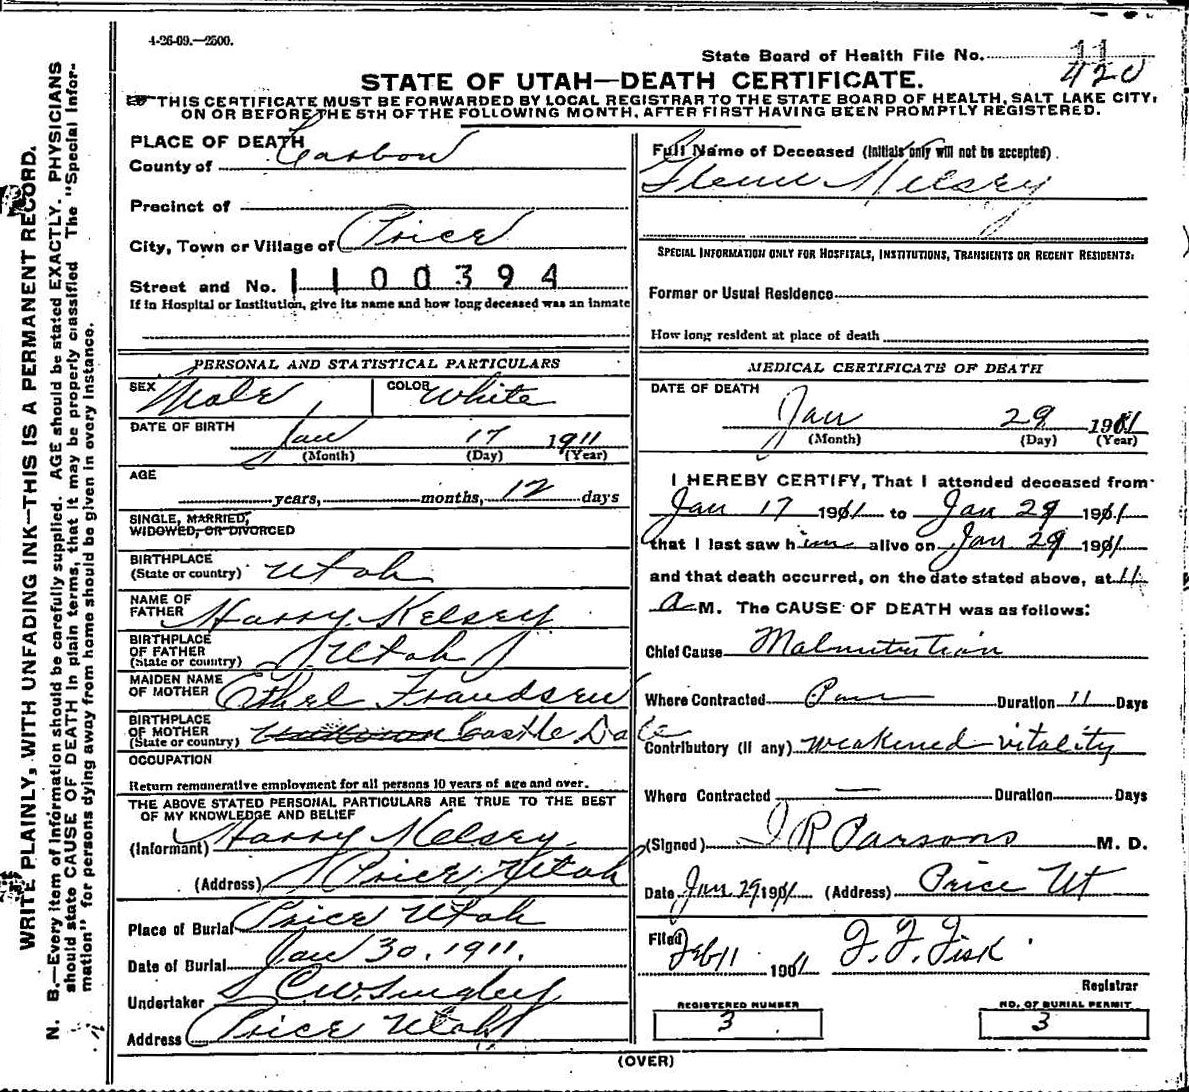 4-26-09.—2500.
State Board of Health File No. 11
420
STATE OF UTAH—DEATH CERTIFICATE.
THIS CERTIFICATE MUST BE FORWARDED BY LOCAL REGISTRAR TO THE STATE BOARD OF HEALTH, SALT LAKE CITY,
ON OR BEFORE THE 5TH OF THE FOLLOWING MONTH, AFTER FIRST HAVING BEEN PROMPTLY REGISTERED.
WRITE PLAINLY, WITH UNFADING INK—THIS IS A PERMANENT RECORD.
N. B.—Every item of information should be carefully supplied. AGE should be stated EXACTLY. PHYSICIANS
should state CAUSE OF DEATH in plain terms, that it may be properly classified. The "Special Infor-
mation" for persons dying away from home should be given in every instance.
PLACE OF DEATH
County of Carbon
Precinct of
City, Town or Village of Price
Street and No. 1100394
If in Hospital or Institution, give its name and how long deceased was an inmate
PERSONAL AND STATISTICAL PARTICULARS
SEX Male COLOR White
DATE OF BIRTH
Jan 17 1911
(Month) (Day) (Year)
AGE
years, months, 12 days
SINGLE, MARRIED,
WIDOWED, OR DIVORCED
BIRTHPLACE
(State or country) Utah
NAME OF
FATHER Harry Kelsey
BIRTHPLACE
OF FATHER
(State or country) Utah
MAIDEN NAME
OF MOTHER Ethel Frandsen
BIRTHPLACE
OF MOTHER
(State or country) Unknown Castle Dale
OCCUPATION
Return remunerative employment for all persons 10 years of age and over.
THE ABOVE STATED PERSONAL PARTICULARS ARE TRUE TO THE BEST
OF MY KNOWLEDGE AND BELIEF
(Informant) Harry Kelsey
(Address) Price, Utah
Place of Burial Price Utah
Date of Burial Jan 30, 1911.
Undertaker C W
Address Price Utah
Full Name of Deceased (Initials only will not be accepted).
Glenn Kelsey
SPECIAL INFORMATION ONLY FOR HOSPITALS, INSTITUTIONS, TRANSIENTS OR RECENT RESIDENTS:
Former or Usual Residence
How long resident at place of death
MEDICAL CERTIFICATE OF DEATH
DATE OF DEATH
Jan 29 1911
(Month) (Day) (Year)
I HEREBY CERTIFY, That I attended deceased from
Jan 17 1911 to Jan 29 1911
that I last saw him alive on Jan 29 1911
and that death occurred, on the date stated above, at 11
a M. The CAUSE OF DEATH was as follows:
Chief Cause Malnutrition
Where Contracted Duration 11 Days
Contributory (if any) weakened vitality
Where Contracted — Duration Days
(Signed) J R Parsons M. D.
Date Jan 29 1911 (Address) Price Ut
Filed Feb 11 1911 F. F. Fisk
Registrar
REGISTERED NUMBER
3
NO. OF BURIAL PERMIT
3
(OVER)